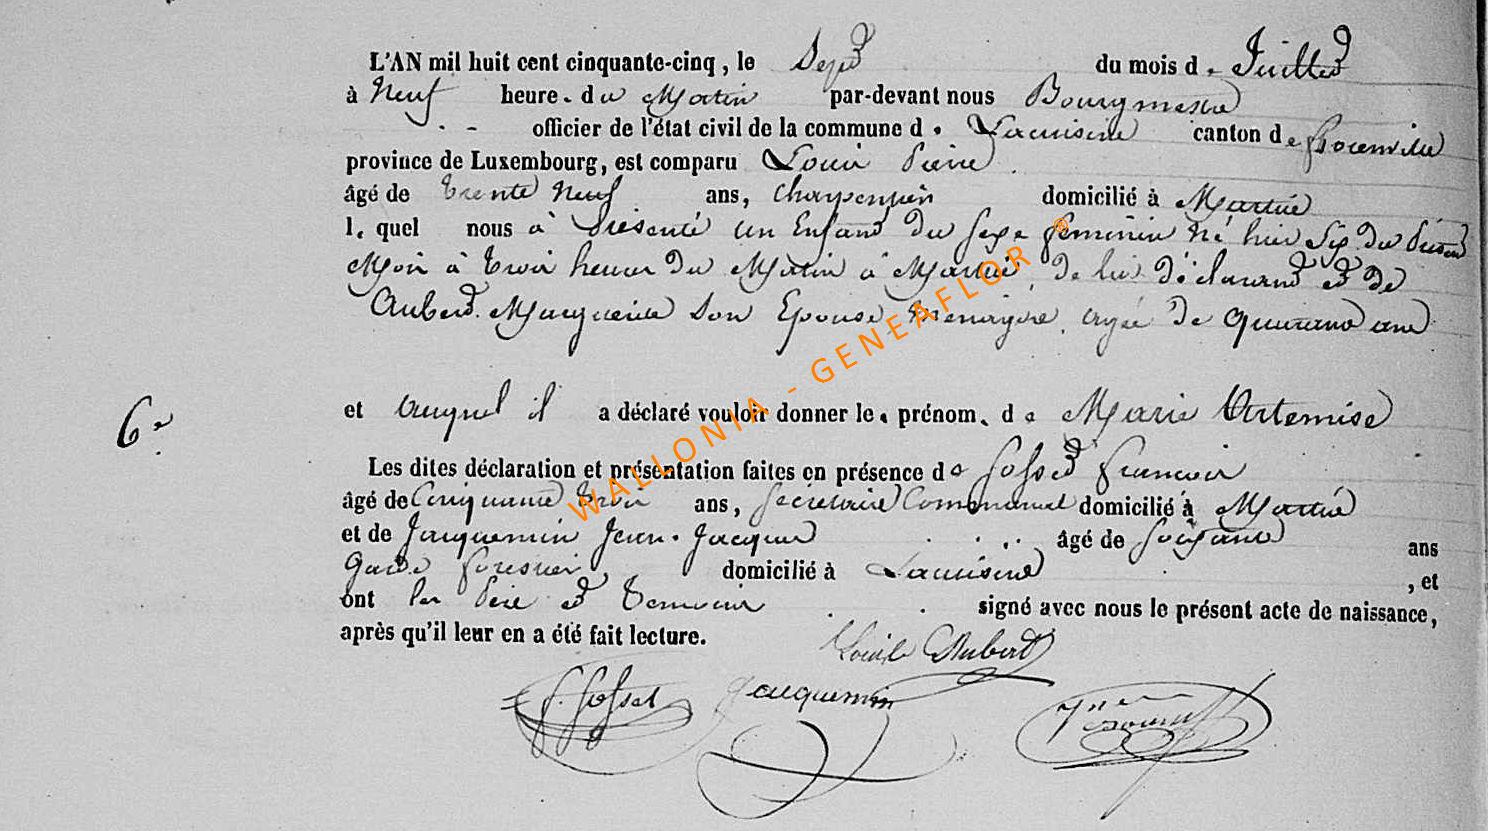 L'AN mil huit cent cinquante-cinq, le Sept du mois de Juillet
à Neuf heure. du Matin par-devant nous Bourgmestre
officier de l'état civil de la commune d. Lacuisine canton de Florenville
province de Luxembourg, est comparu Louis Pierre
âgé de trente Neuf ans, Charpentier domicilié à Martué
l. quel nous à présenté un Enfant du sexe feminin Né hier Six du présent
Mois à trois heures du Matin à Martué, de lui déclarant et de
Aubert Marguerite Son Epouse, Menagère, agée de quarante ans
6e.
et auquel il a déclaré vouloir donner le. prénom. de Marie Artemise
Les dites déclaration et présentation faites en présence de Gosset François
âgé de Cinquante trois ans, Secretaire Communal domicilié à Martué
et de Jacquemin Jean-Jacques âgé de Soixante ans
Garde forestier domicilié à Lacuisine, et
ont les Père et temoins signé avec nous le présent acte de naissance,
après qu'il leur en a été fait lecture.
Aubert
Gosset Jacquemin
WALLONIA - GENEAFLOR ®